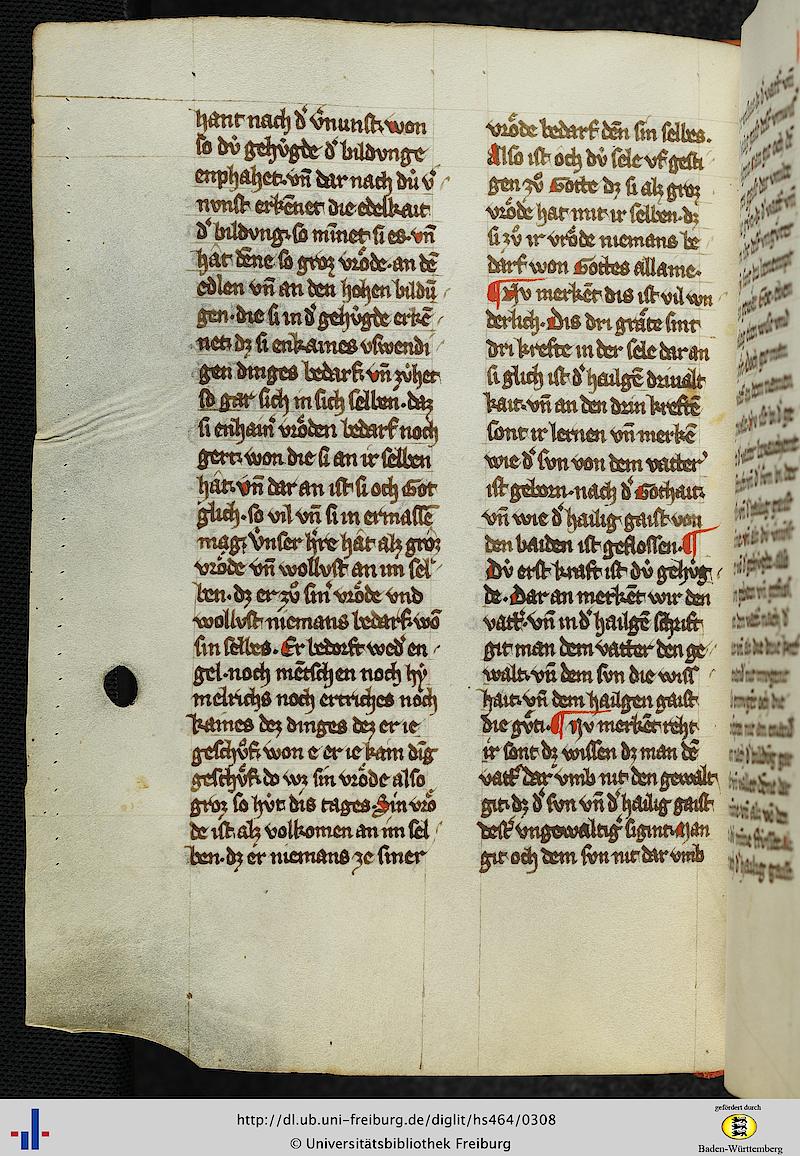 hant nach d᾽ v᾽nunst. won
so dv̍ gehv̍gde d᾽ bildvnge
enphahet. vn̄ dar nach dv̍ v᾽
nvnst erkēnet die edelkait
d᾽ bildvng. so mīnet si es. vn̄
hât dēne so groz vrôde. an dē
edlen vn̄ an den hohen bildv̄
gen. die si in d᾽ gehv̍gde erkē
net. dz si enkaines vswendi
gen dinges bedarf. vn̄ zv̍het
so gar sich in sich selben. daz
si enhain᾽ vrôden bedarf noch
gert. won die si an ir selben
hât. vn̄ dar an ist si och Got
glich. so vil vn̄ si in ermassē
mag. v̍nser h᾽re hât alz groz
vrôde vn̄ wollvst an im sel
ben. dz er zvͦ sin᾽ vrôde vnd
wollvst niemans bedarf. wō
sin selbes. Er bedorft wed᾽ en
gel. noch mētschen noch hy
melrichs noch ertriches noch
kaines dez dinges dez er ie
geschv̍f. won e er ie kain dīg
geschv̍f. do wz sin vrôde also
groz so hv̍t dis tages. Sin vrô
de ist alz volkomen an im sel
ben. dz er niemans ze siner
vrôde bedarf dēn sin selbes.
Also ist och dv̍ sele vf gesti
gen zvͦ Gotte dz si alz groz
vrôde hat mit ir selben. dz
si zvͦ ir vrôde niemans be
darf won Gottes allaine.
¶ Nv merkēt dis ist vil wn
derlich. Dis dri grâte sint
dri krefte in der sele dar an
si glich ist d᾽ hailgē drivalt
kait. vn̄ an den drin kreftē
sont ir lernen vn̄ merkē
wie d᾽ svn von dem vatter
ist geborn. nach d᾽ Gothait.
vn̄ wie d᾽ hailig gaist von
den baiden ist geflossen. ¶
Dv̍ erst kraft ist dv̍ gehv̍g
de. Dar an merkēt wir den
vatt᾽. vn̄ in d᾽ hailgē schrift
git man dem vatter den ge
walt. vn̄ dem svn die wiss
hait. vn̄ dem hailgen gaist
die gv̂ti. ¶ Nv merkēt reht
ir sont dz wissen dz man dē
vatt᾽ dar vmb nit den gewalt
git. dz d᾽ svn vn̄ d᾽ hailig gaist
dest᾽ vngewaltig᾽ sigint. Man
git och dem svn nit dar vmb
http://dl.ub.uni-freiburg.de/diglit/hs464/0308
© Universitätsbibliothek Freiburg
gefördert durch
Baden-Württemberg